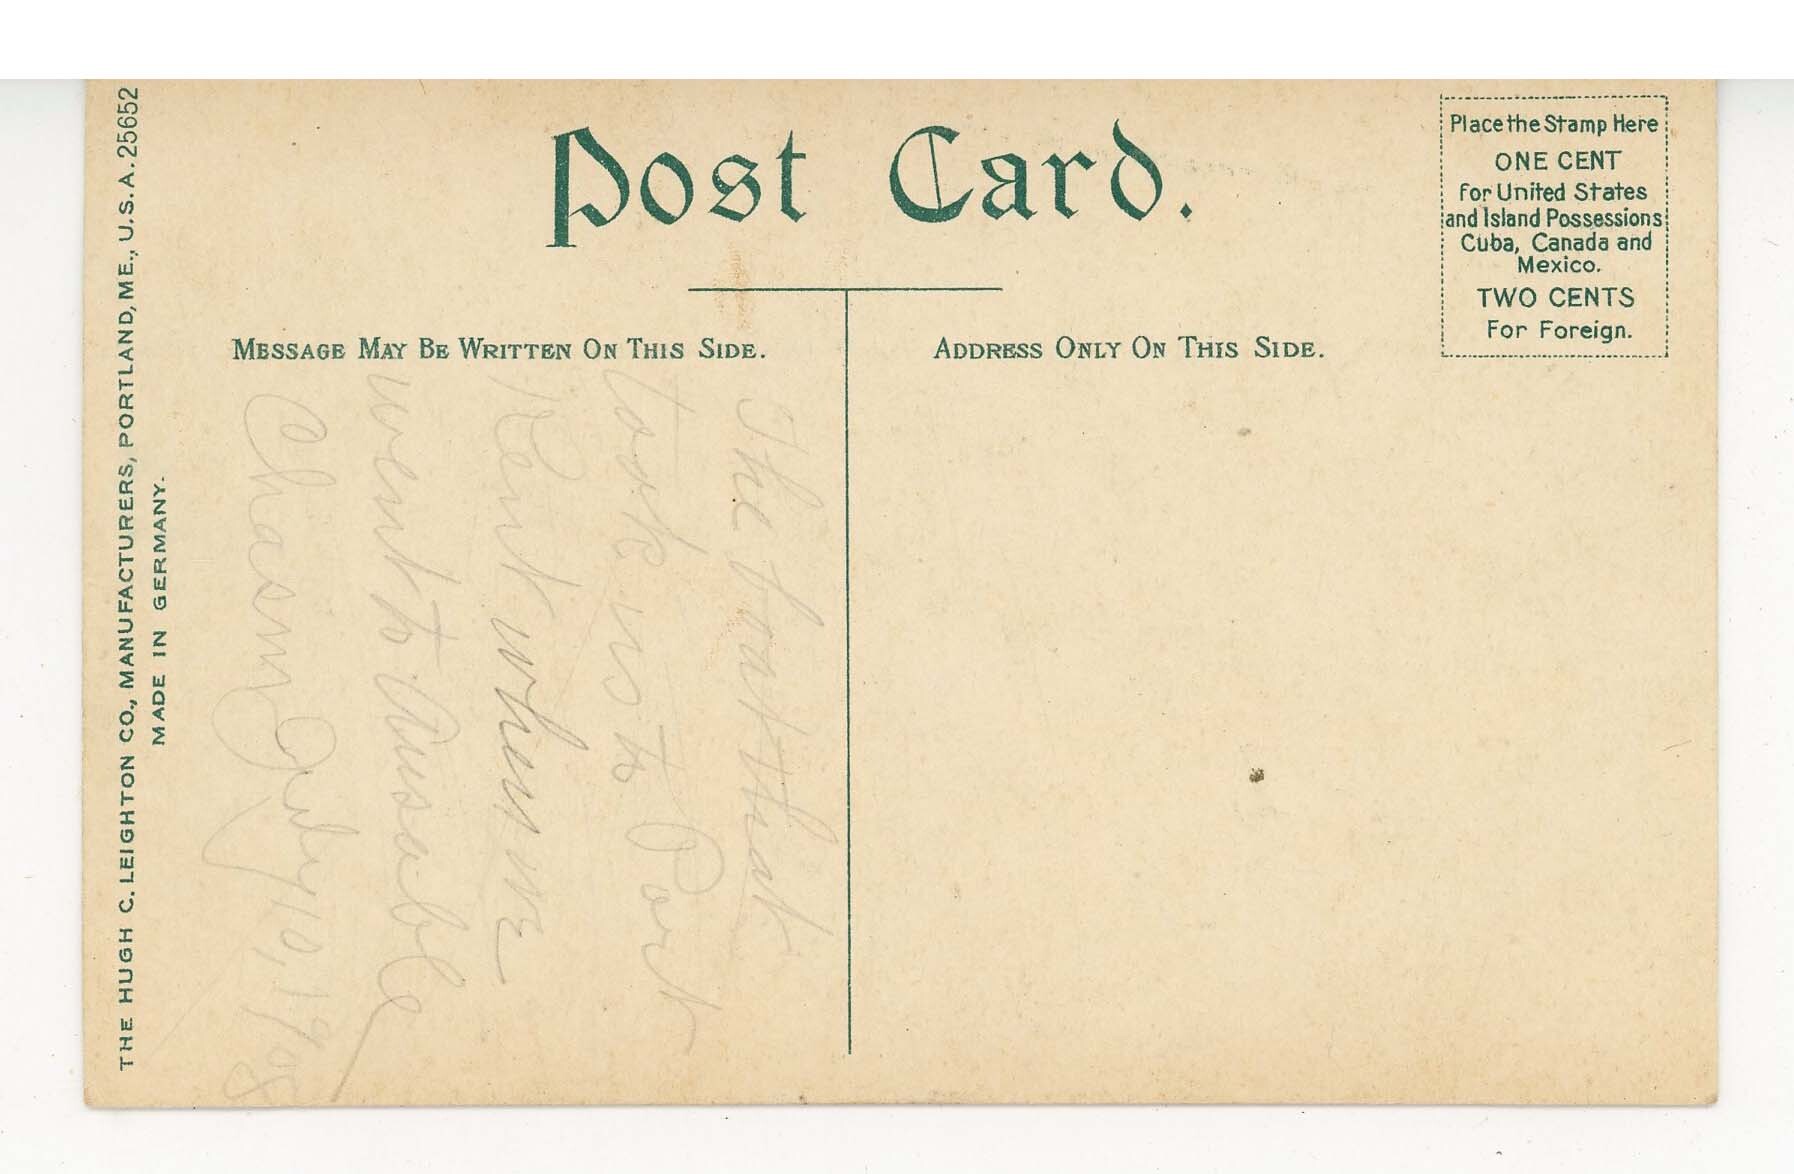 Post Card.
Place the Stamp Here
ONE CENT
for United States
and Island Possessions
Cuba, Canada and
Mexico.
TWO CENTS
For Foreign.
MESSAGE MAY BE WRITTEN ON THIS SIDE.
ADDRESS ONLY ON THIS SIDE.
The boat that
took us to Port
Kent when we
went to Ausable
Chasm July 10, 1908
THE HUGH C. LEIGHTON CO., MANUFACTURERS, PORTLAND, ME., U.S.A. 25652
MADE IN GERMANY.